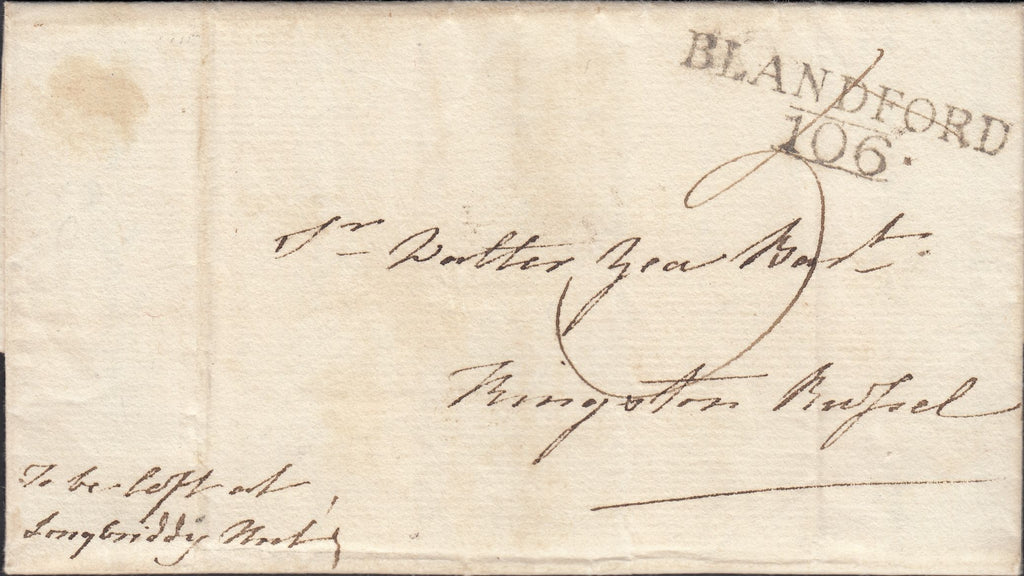 BLANDFORD
106.
Sr Walter Yea Bart.
Kingston Rufsel
To be left at
Longbriddy